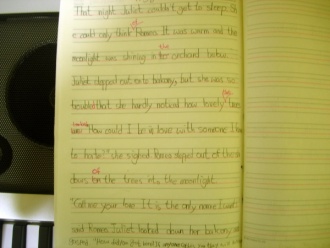 That night Juliet couldn't get to sleep. Sh
e could only think of Romeo. It was warm and the
moonlight was shining in the orchard below.
Juliet stepped out onto balcony, but she was so
troubled that she hardly noticed how lovely
How could I be in love with someone I have
to hate?" she sighed. Romeo stepped out of the sha
dows of the trees into the moonlight.
"Call me your love. It is the only name I want
said Romeo. Juliet looked down her balcony and